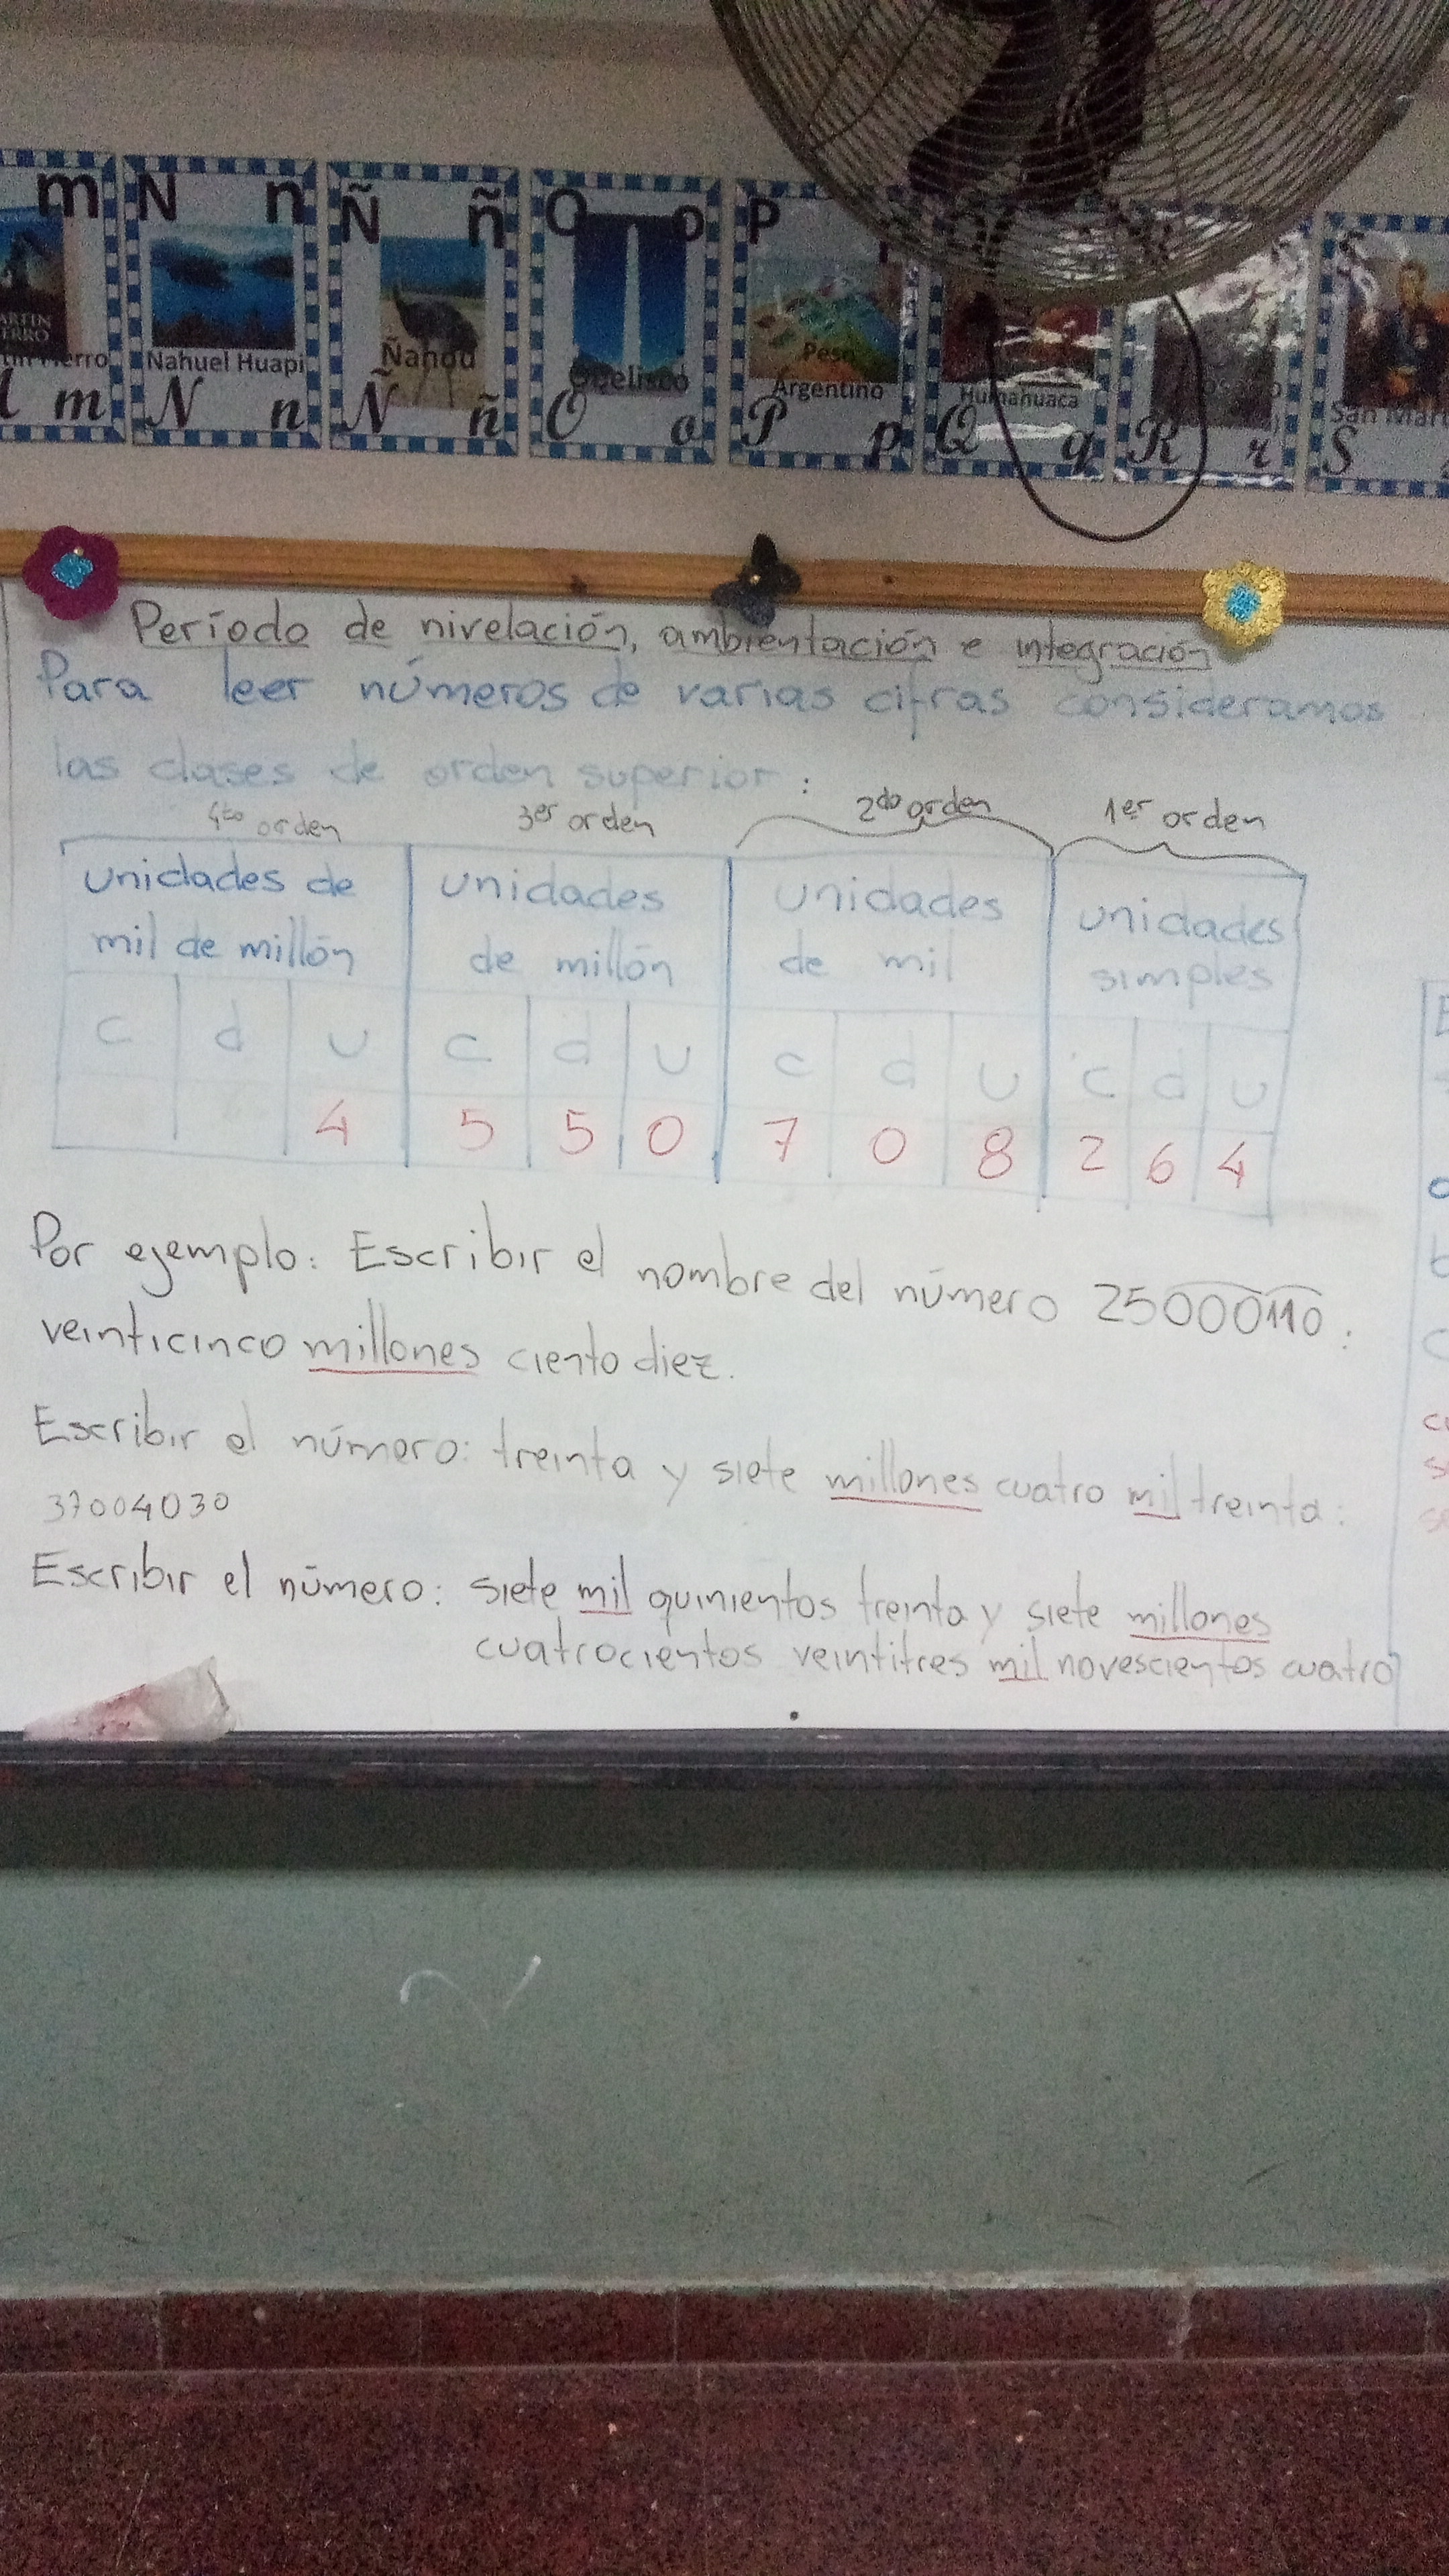 m N n Ñ ñ O o P
MARTIN
FIERRO
Nahuel Huapi Ñandú Obelisco Peso
Argentino
Humahuaca
San Mart
m N n Ñ ñ O o P p Q q R r S
Período de nivelación, ambientación e integración
Para leer números de varias cifras consideramos
las clases de orden superior:
4to orden 3er orden 2do orden 1er orden
unidades de unidades unidades unidades
mil de millón de millón de mil simples
c d u c d u c d u c d u
4 5 5 0 7 0 8 2 6 4
Por ejemplo: Escribir el nombre del número 25000110:
veinticinco millones ciento diez.
Escribir el número: treinta y siete millones cuatro mil treinta:
37004030
Escribir el número: siete mil quinientos treinta y siete millones
cuatrocientos veintitres mil novescientos cuatro